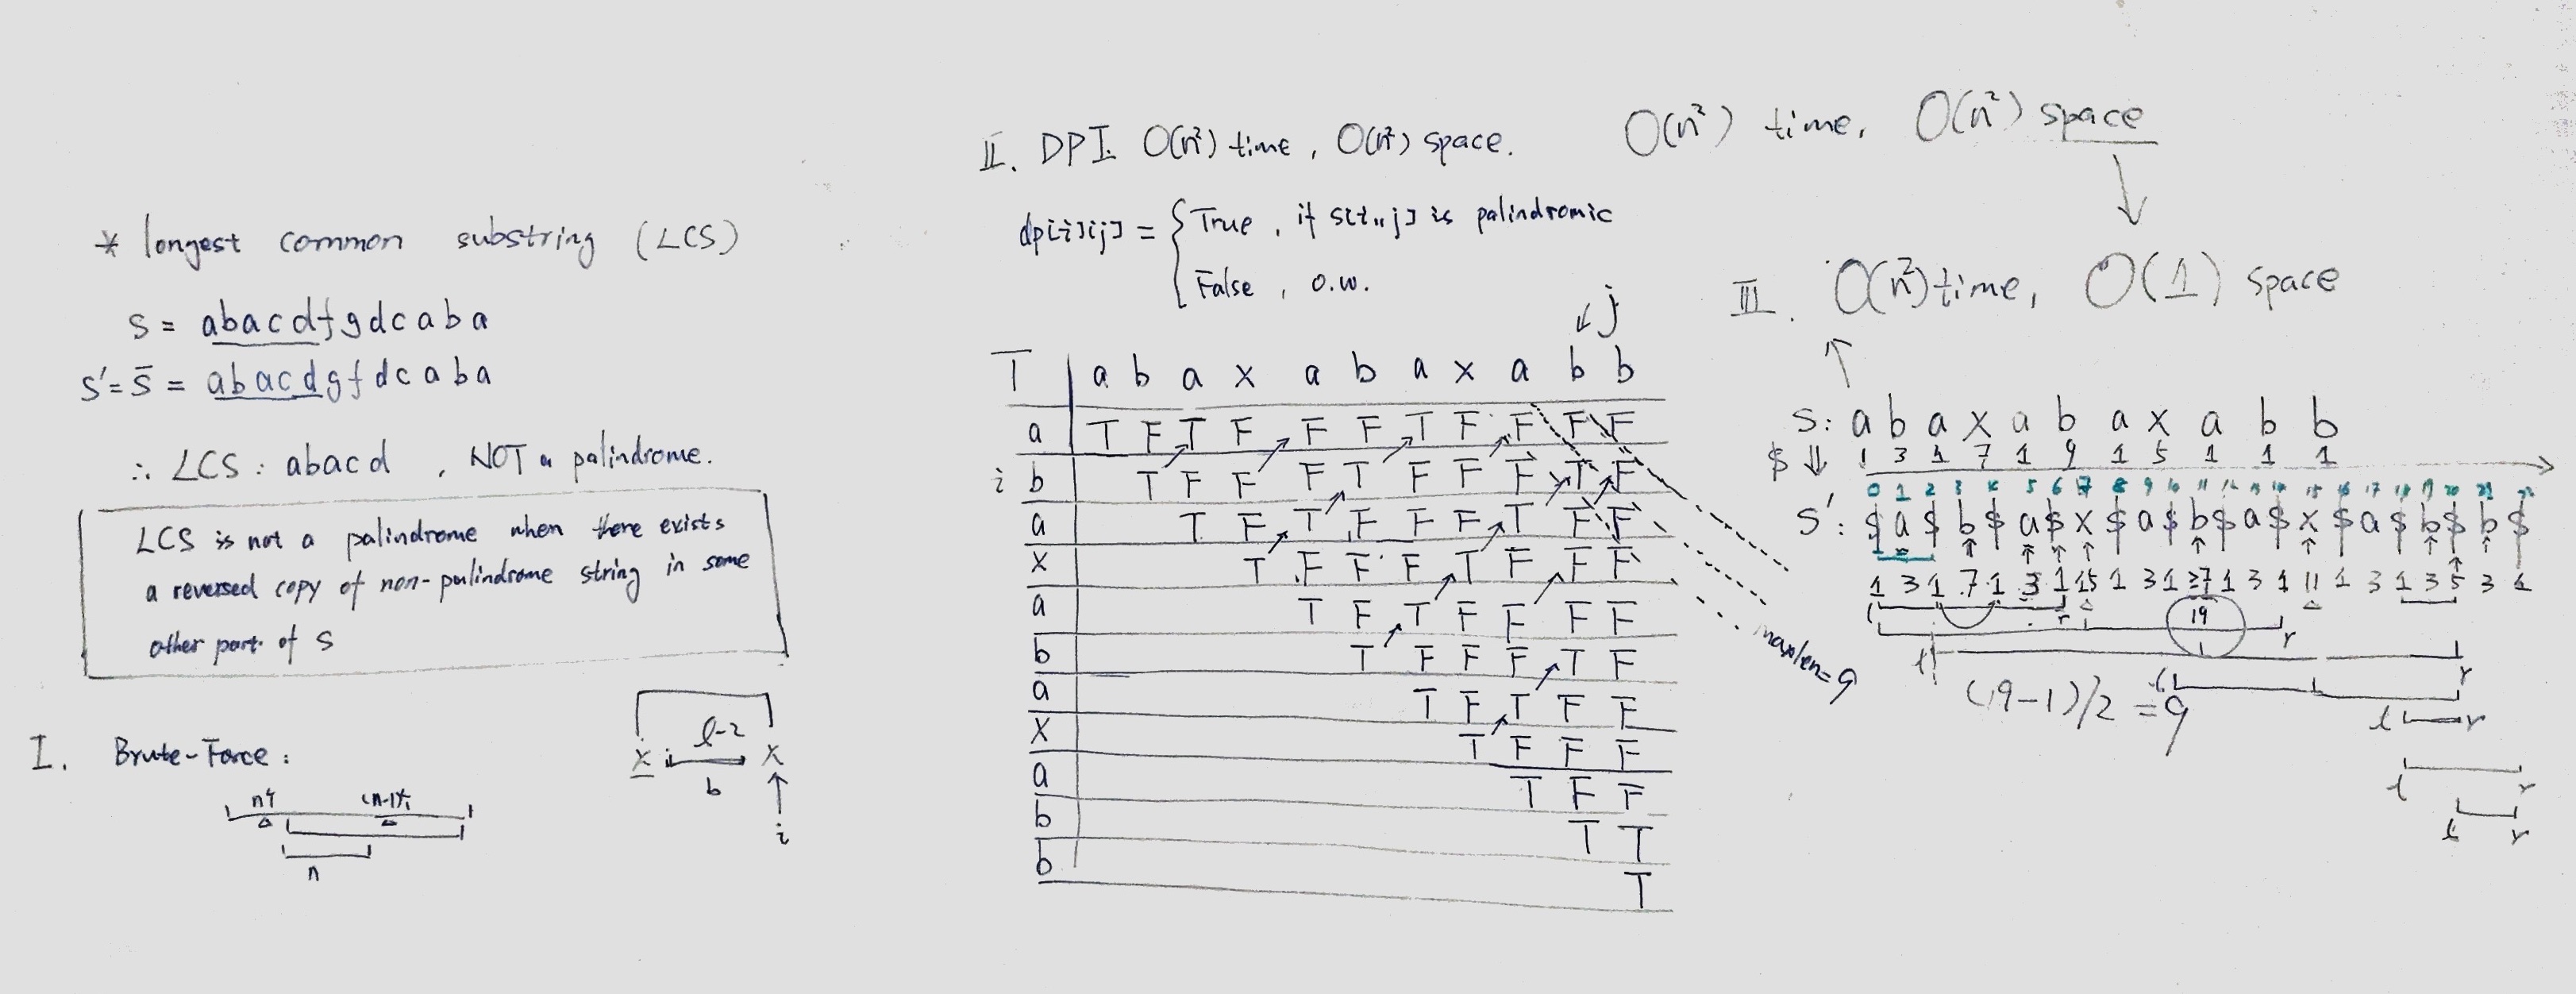 * longest common substring (LCS)
S = abacdfgdcaba
S'= S̄ = abacdgfdcaba
∴ LCS : abacd , NOT a palindrome.
LCS is not a palindrome when there exists
a reversed copy of non-palindrome string in some
other part of S
I. Brute-Force :
n
l-2
x x
b
i
II. DPI. O(n²) time , O(n²) space.
dp[i][j] = { True , if s[i..j] is palindromic
False , o.w.
j
T a b a x a b a x a b b
a T F T F F F T F F F F
i b T F F F T F F F T F
a T F T F F F T F F
x T F F F T F F F
a T F T F F F F
b T F F F T F
a T F T F F
x T F F F
a T F F
b T T
b T
maxlen=9
O(n²) time, O(n²) space
III. O(n²) time, O(1) space
S: a b a x a b a x a b b
$ ⇓ 1 3 1 7 1 9 1 5 1 1 1
0 1 2 3 4 5 6 7 8 9 10 11 12 13 14 15 16 17 18 19 20 21 22
S': $ a $ b $ a $ x $ a $ b $ a $ x $ a $ b $ b $
1 3 1 7 1 3 1 15 1 3 1 1 3 1 11 1 3 1 3 5 3 1
19
l r
r
l r
(19-1)/2 = 9
l r
l r
l r